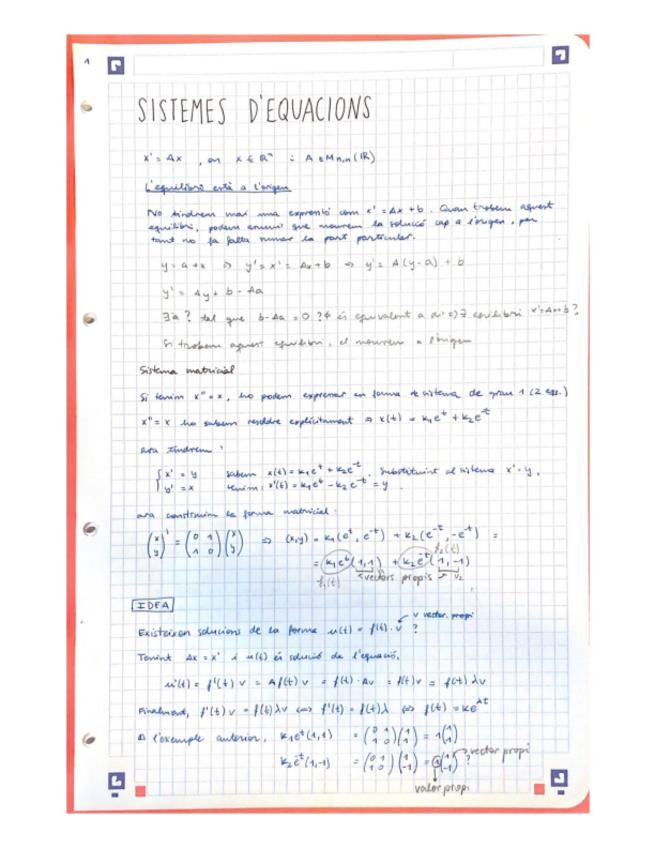 1
SISTEMES D'EQUACIONS
x' = Ax , on x ∈ ℝⁿ i A ∈ Mn,n(ℝ)
L'equilibri està a l'origen
No tindrem mai una expressió com x' = Ax + b. Quan trobem aquest
equilibri, podem anunciar que mourem la solució cap a l'origen, per
tant no fa falta sumar la part particular.
y = a + x ⇒ y' = x' = Ax + b ⇒ y' = A(y-a) + b
y' = Ay + b - Aa
∃a? tal que b - Aa = 0 ? és equivalent a dir ∃ equilibri x' = Ax+b?
Si trobem aquest equilibri, el mourem a l'origen
Sistema matricial
Si tenim x'' = x, ho podem expressar en forma de sistema de grau 1 (2 eqs.)
x'' = x ho sabem resoldre explícitament ⇒ x(t) = k₁eᵗ + k₂e⁻ᵗ
ara tindrem:
{ x' = y sabem x(t) = k₁eᵗ + k₂e⁻ᵗ. Substituint al sistema x' = y,
y' = x tenim: x'(t) = k₁eᵗ - k₂e⁻ᵗ = y
ara construïm la forma matricial:
(x y)' = (0 1 1 0)(x y) ⇒ (x,y) = k₁(eᵗ, eᵗ) + k₂(e⁻ᵗ, -e⁻ᵗ) =
f₂(t)
= k₁eᵗ(1,1) + k₂e⁻ᵗ(1,-1)
f₁(t) vectors propis v₂
IDEA
v vector propi
Existeixen solucions de la forma u(t) = f(t)·v ?
Tenint Ax = x' i u(t) és solució de l'equació,
u'(t) = f'(t) v = A f(t) v = f(t)·Av = f(t) v = f(t) λv
Finalment, f'(t) v = f(t) λv ⇔ f'(t) = f(t) λ ⇔ f(t) = ke^λt
A l'exemple anterior, k₁eᵗ(1,1) = (0 1 1 0)(1 1) = 1(1 1)
k₂e⁻ᵗ(1,-1) = (0 1 1 0)(1 -1) = (1 -1) ? vector propi
valor propi